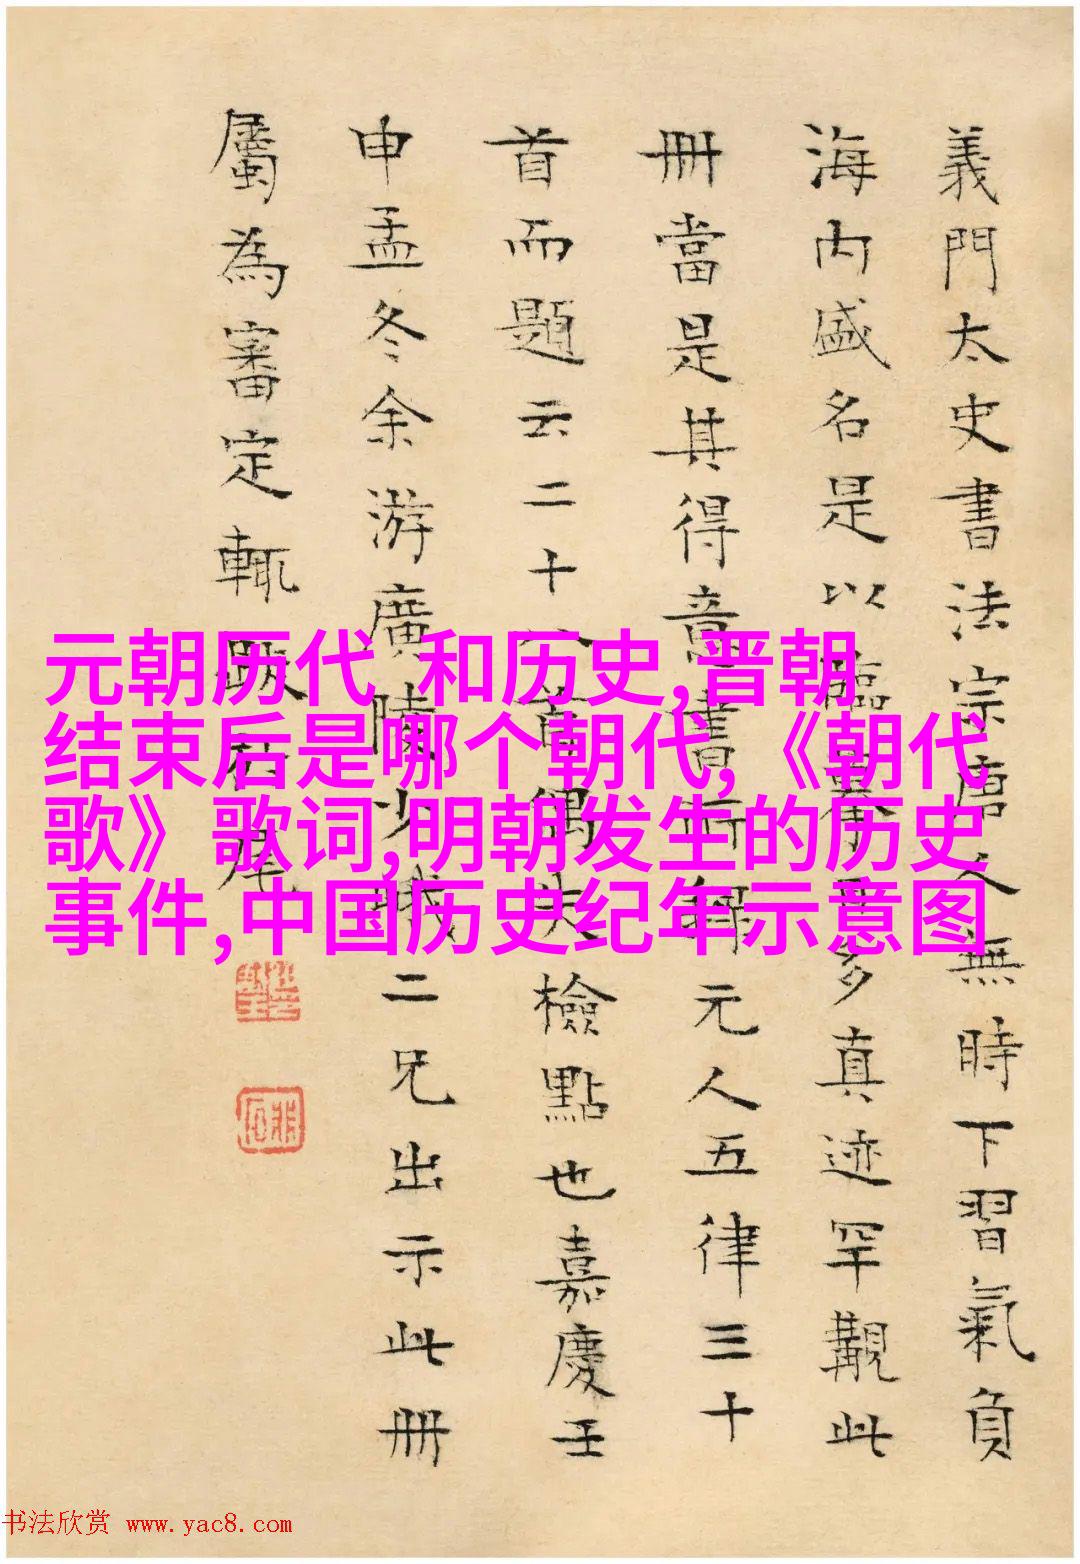 義門太史書法宗唐人無時下習氣負
海内盛名是以臨摹多真迹罕觀此
冊當是其得意書所錄元人五律三十
首而題云二十八首偶失檢點也嘉慶壬
申孟冬余游廣陵少城二兄出示此冊
屬為審定輒跋於尾
元朝历代 和历史,晋朝
结束后是哪个朝代,《朝代
歌》歌词,明朝发生的历史
事件,中国历史纪年示意图
书法欣赏 www.yac8.com